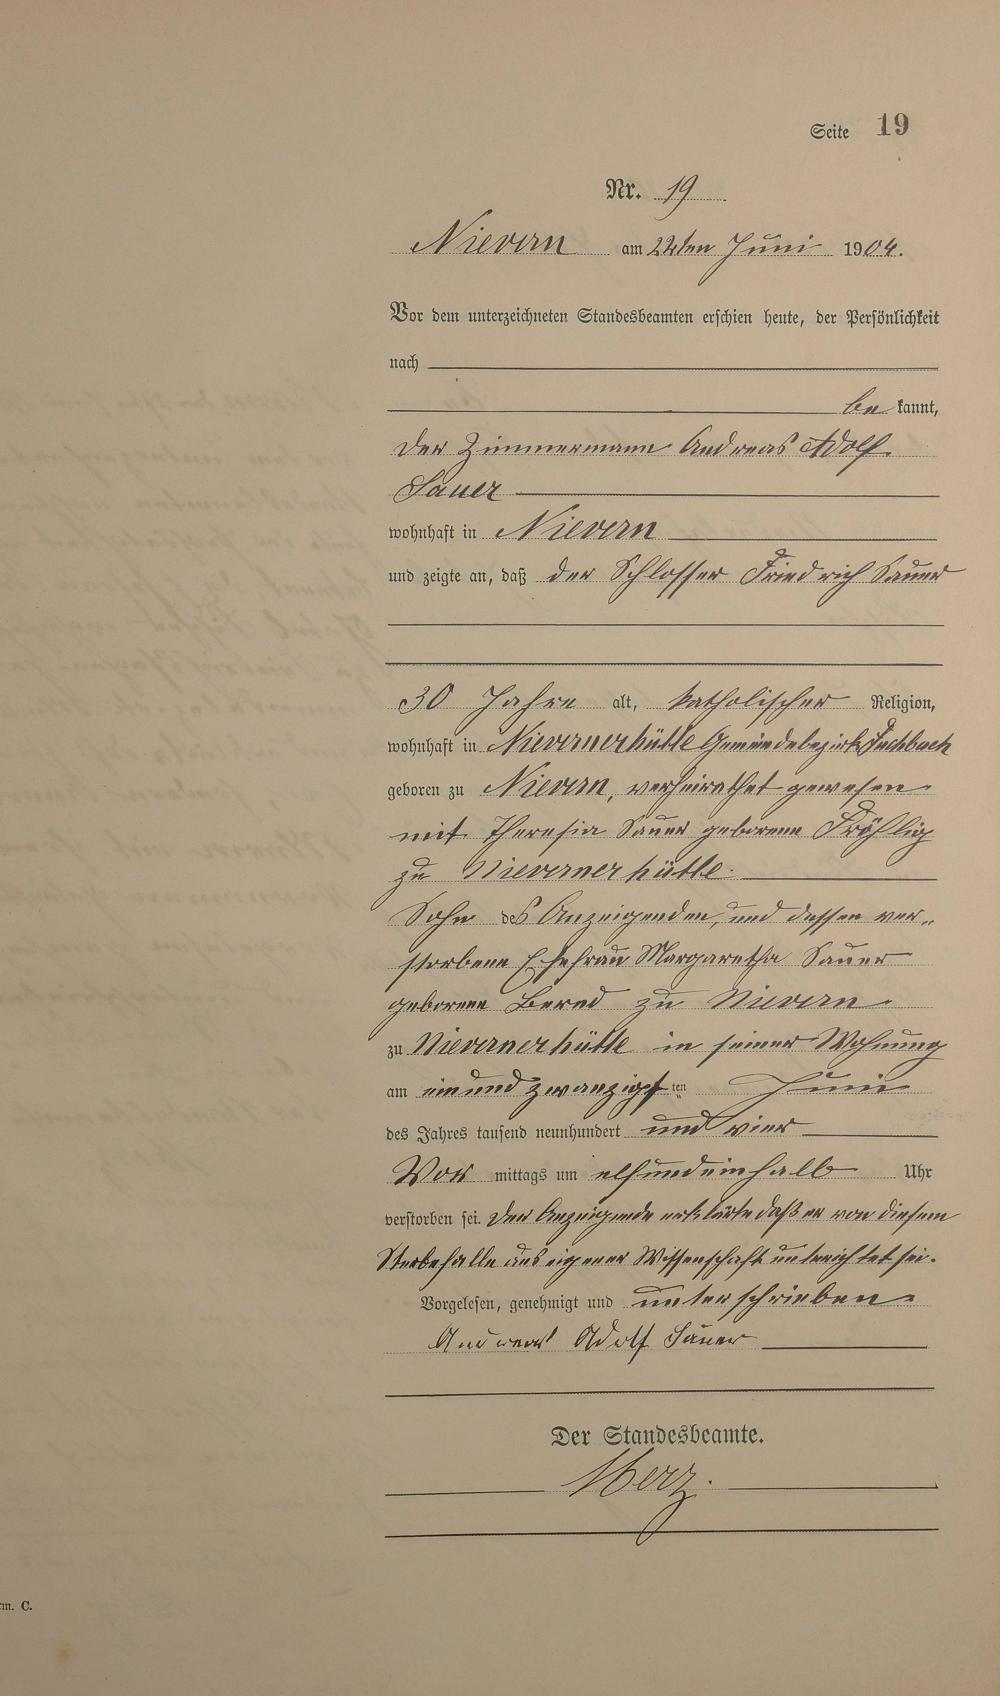 Seite 19
Nr. 19
Nievern am 22ten Juni 1904.
Vor dem unterzeichneten Standesbeamten erschien heute, der Persönlichkeit
nach
be kannt,
der Zimmermann Andreas Adolf
Sauer
wohnhaft in Nievern
und zeigte an, daß der Schlosser Friedrich Sauer
30 Jahre alt, katholischer Religion,
wohnhaft in Nievernerhütte Gemeindebezirk Fachbach
geboren zu Nievern, verheirathet gewesen
mit Theresia Sauer geborene Fröhlig
zu Nievernerhütte.
Sohn des Anzeigenden, und dessen ver„
storbene Ehefrau Margaretha Sauer
geborene Bernd zu Nievern
zu Nievernerhütte in seiner Wohnung
am einundzwanzigsten Juni
des Jahres tausend neunhundert und vier
Vor mittags um elfundeinhalb Uhr
verstorben sei. Der Anzeigende erklärte daß er von diesem
Sterbefalle aus eigener Wissenschaft unterrichtet sei.
Vorgelesen, genehmigt und unterschrieben
Andreas Adolf Sauer
Der Standesbeamte.
Merz.
rm. C.